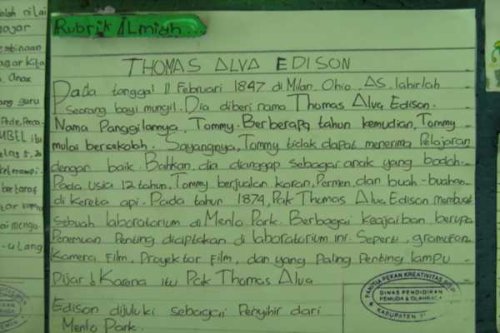 Rubrik Ilmiah
THOMAS ALVA EDISON
Pada tanggal 11 Februari 1847 di Milan, Ohio, AS. lahirlah
seorang bayi mungil. Dia diberi nama Thomas Alva Edison.
Nama Panggilannya, Tommy. Berberapa tahun kemudian, Tommy
mulai bersekolah. Sayangnya, Tommy tidak dapat menerima Pelajaran
dengan baik. Bahkan, dia dianggap sebagai anak yang bodoh.
Pada usia 12 tahun, Tommy berjualan koran, Permen, dan buah-buahan
di kereta api. Pada tahun 1874, Pak Thomas Alva Edison membuat
sebuah laboratorium di Menlo Park. Berbagai keajaiban berupa
Penemuan Penting diciptakan di laboratorium ini. Seperti, gramofon
Kamera Film, Proyektor Film, dan yang Paling Penting lampu
Pijar! Karena itu Pak Thomas Alva
Edison dijuluki sebagai Penyihir dari
Menlo Park.
PANITIA PEKAN KREATIVITAS
DINAS PENDIDIKAN
PEMUDA & OLAHRAGA
KABUPATEN